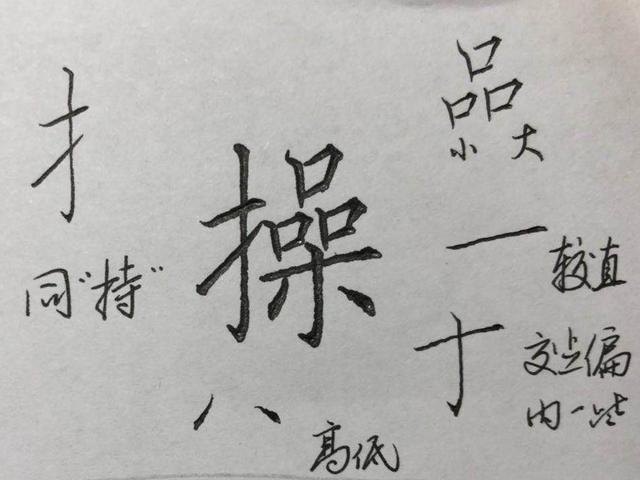 扌
同"持"
操
品
小 大
一
较直
十
交点偏
内一些
八
高低